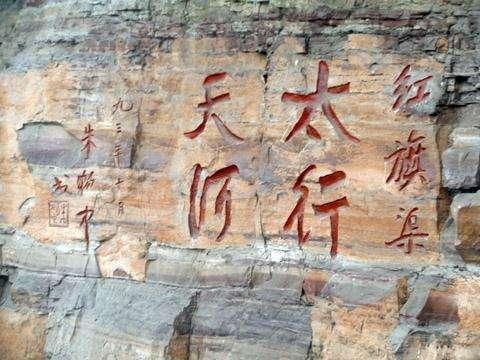 红旗渠
太行
天河
九三年十月
朱
书